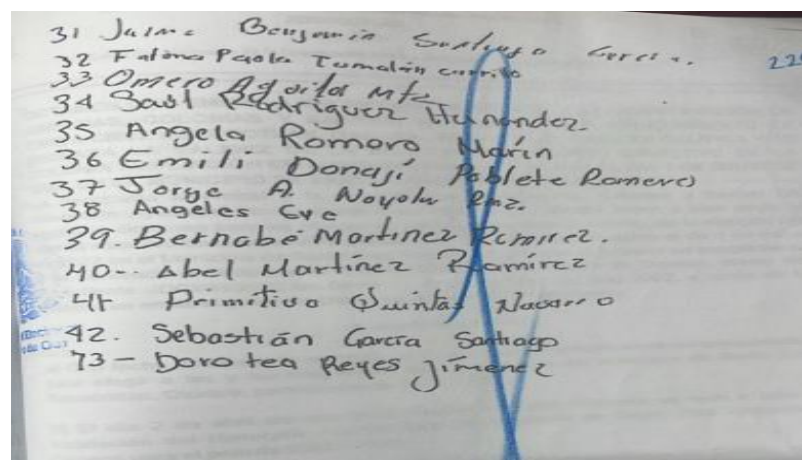 31 Jaime Benjamin Santiago Garcia.
32 Fatima Paola Tumalán Carrillo
220
33 Omero Aguilar
34 Saul Rodriguez Hernandez.
35 Angela Romoro Marín
36 Emili Donají Poblete Romero
37 Jorge A. Noyola
38 Angeles Eve
39. Bernabé Martinez Ramirez.
40-. Abel Martínez Ramírez
41 Primitivo Quintas Navarro
42. Sebastián García Santiago
73- Dorotea Reyes Jiménez